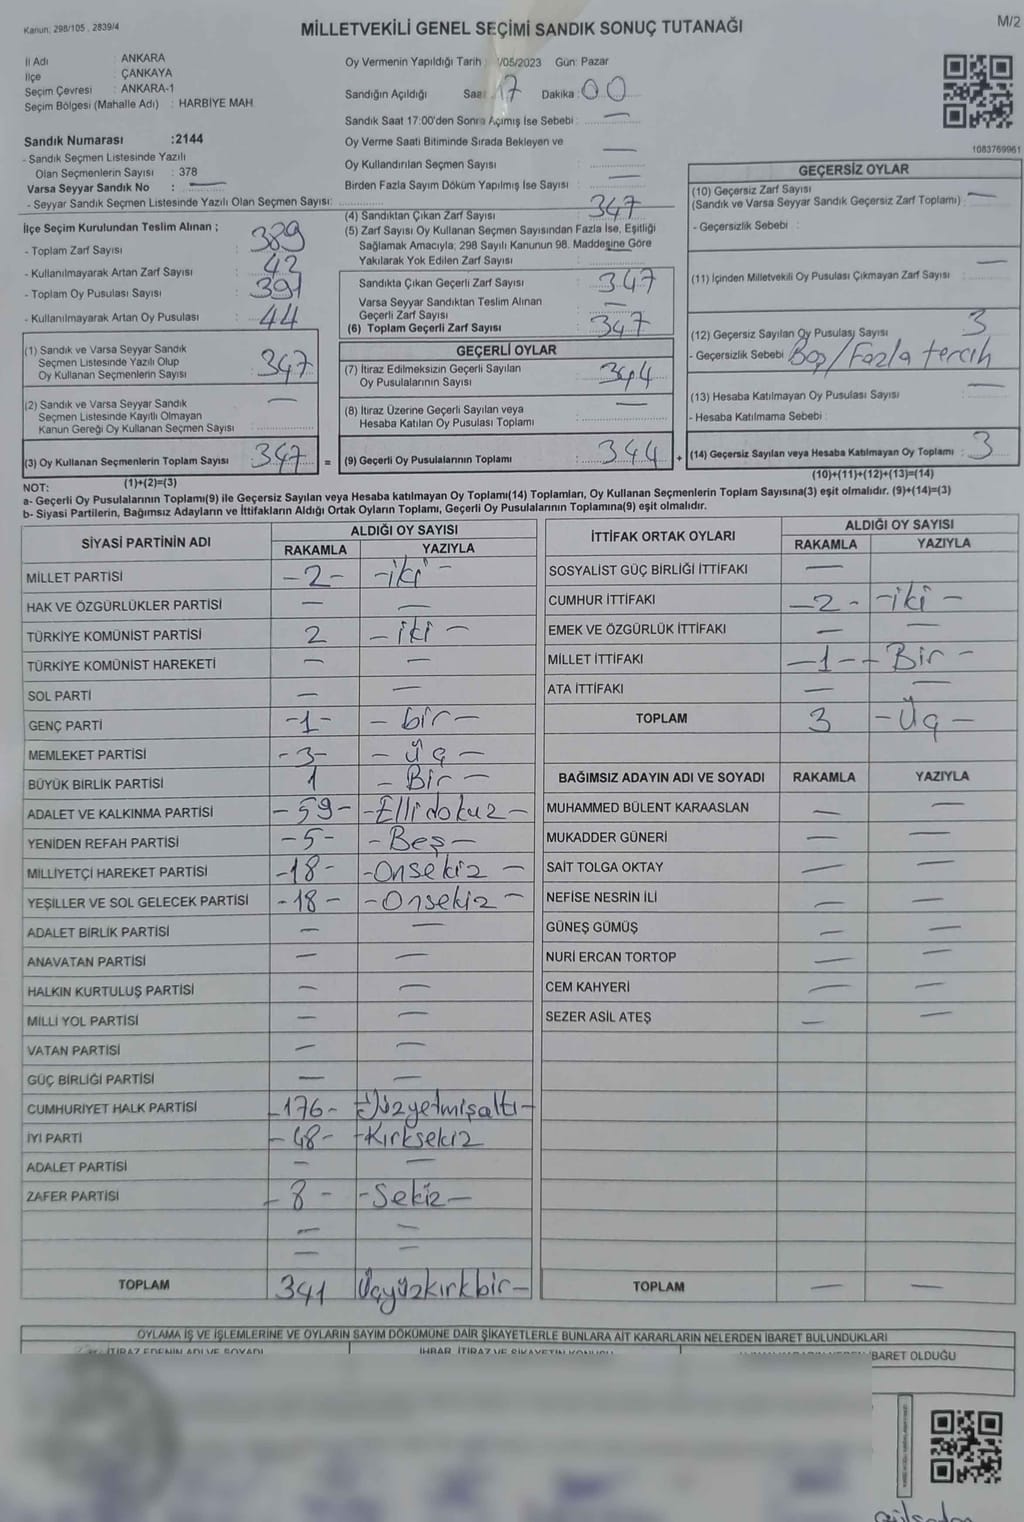 Kanun: 298/105 , 2839/4
MİLLETVEKİLİ GENEL SEÇİMİ SANDIK SONUÇ TUTANAĞI
M/2
İl Adı : ANKARA
İlçe : ÇANKAYA
Seçim Çevresi : ANKARA-1
Seçim Bölgesi (Mahalle Adı) : HARBİYE MAH
Sandık Numarası :2144
- Sandık Seçmen Listesinde Yazılı
Olan Seçmenlerin Sayısı : 378
Varsa Seyyar Sandık No : —
- Seyyar Sandık Seçmen Listesinde Yazılı Olan Seçmen Sayısı:
Oy Vermenin Yapıldığı Tarih : /05/2023 Gün: Pazar
Sandığın Açıldığı Saat 17 Dakika : 00
Sandık Saat 17:00'den Sonra Açımış İse Sebebi : —
Oy Verme Saati Bitiminde Sırada Bekleyen ve
Oy Kullandırılan Seçmen Sayısı —
Birden Fazla Sayım Döküm Yapılmış İse Sayısı : —
1083769961
İlçe Seçim Kurulundan Teslim Alınan ;
- Toplam Zarf Sayısı : 389
- Kullanılmayarak Artan Zarf Sayısı : 42
- Toplam Oy Pusulası Sayısı : 391
- Kullanılmayarak Artan Oy Pusulası : 44
(1) Sandık ve Varsa Seyyar Sandık
Seçmen Listesinde Yazılı Olup
Oy Kullanan Seçmenlerin Sayısı : 347
(2) Sandık ve Varsa Seyyar Sandık
Seçmen Listesinde Kayıtlı Olmayan
Kanun Gereği Oy Kullanan Seçmen Sayısı : —
(3) Oy Kullanan Seçmenlerin Toplam Sayısı : 347 =
(1)+(2)=(3)
(4) Sandıktan Çıkan Zarf Sayısı : 347
(5) Zarf Sayısı Oy Kullanan Seçmen Sayısından Fazla İse, Eşitliği
Sağlamak Amacıyla; 298 Sayılı Kanunun 98. Maddesine Göre
Yakılarak Yok Edilen Zarf Sayısı : —
Sandıkta Çıkan Geçerli Zarf Sayısı : 347
Varsa Seyyar Sandıktan Teslim Alınan
Geçerli Zarf Sayısı : —
(6) Toplam Geçerli Zarf Sayısı : 347
GEÇERLİ OYLAR
(7) İtiraz Edilmeksizin Geçerli Sayılan
Oy Pusulalarının Sayısı : 344
(8) İtiraz Üzerine Geçerli Sayılan veya
Hesaba Katılan Oy Pusulası Toplamı : —
(9) Geçerli Oy Pusulalarının Toplamı : 344 +
GEÇERSİZ OYLAR
(10) Geçersiz Zarf Sayısı
(Sandık ve Varsa Seyyar Sandık Geçersiz Zarf Toplamı) : —
- Geçersizlik Sebebi :
(11) İçinden Milletvekili Oy Pusulası Çıkmayan Zarf Sayısı : —
(12) Geçersiz Sayılan Oy Pusulası Sayısı : 3
- Geçersizlik Sebebi : Boş/Fazla tercih
(13) Hesaba Katılmayan Oy Pusulası Sayısı : —
- Hesaba Katılmama Sebebi :
(14) Geçersiz Sayılan veya Hesaba Katılmayan Oy Toplamı : 3
(10)+(11)+(12)+(13)=(14)
NOT:
a- Geçerli Oy Pusulalarının Toplamı(9) ile Geçersiz Sayılan veya Hesaba katılmayan Oy Toplamı(14) Toplamları, Oy Kullanan Seçmenlerin Toplam Sayısına(3) eşit olmalıdır. (9)+(14)=(3)
b- Siyasi Partilerin, Bağımsız Adayların ve İttifakların Aldığı Ortak Oyların Toplamı, Geçerli Oy Pusulalarının Toplamına(9) eşit olmalıdır.
SİYASİ PARTİNİN ADI ALDIĞI OY SAYISI
RAKAMLA YAZIYLA
MİLLET PARTİSİ -2- -iki-
HAK VE ÖZGÜRLÜKLER PARTİSİ — —
TÜRKİYE KOMÜNİST PARTİSİ 2 -iki-
TÜRKİYE KOMÜNİST HAREKETİ — —
SOL PARTİ — —
GENÇ PARTİ -1- -bir-
MEMLEKET PARTİSİ -3- -üç-
BÜYÜK BİRLİK PARTİSİ 1 -Bir-
ADALET VE KALKINMA PARTİSİ -59- -Ellidokuz-
YENİDEN REFAH PARTİSİ -5- -Beş-
MİLLİYETÇİ HAREKET PARTİSİ -18- -Onsekiz-
YEŞİLLER VE SOL GELECEK PARTİSİ -18- -Onsekiz-
ADALET BİRLİK PARTİSİ — —
ANAVATAN PARTİSİ — —
HALKIN KURTULUŞ PARTİSİ — —
MİLLİ YOL PARTİSİ — —
VATAN PARTİSİ — —
GÜÇ BİRLİĞİ PARTİSİ — —
CUMHURİYET HALK PARTİSİ -176- -Yüzyetmişaltı-
İYİ PARTİ -48- -Kırksekiz
ADALET PARTİSİ — —
ZAFER PARTİSİ -8- -Sekiz-
— —
— —
TOPLAM 341 Üçyüzkırkbir-
İTTİFAK ORTAK OYLARI ALDIĞI OY SAYISI
RAKAMLA YAZIYLA
SOSYALİST GÜÇ BİRLİĞİ İTTİFAKI —
CUMHUR İTTİFAKI -2- -iki-
EMEK VE ÖZGÜRLÜK İTTİFAKI — —
MİLLET İTTİFAKI -1- -Bir-
ATA İTTİFAKI — —
TOPLAM 3 -Üç-
BAĞIMSIZ ADAYIN ADI VE SOYADI RAKAMLA YAZIYLA
MUHAMMED BÜLENT KARAASLAN — —
MUKADDER GÜNERİ — —
SAİT TOLGA OKTAY — —
NEFİSE NESRİN İLİ — —
GÜNEŞ GÜMÜŞ — —
NURİ ERCAN TORTOP — —
CEM KAHYERİ — —
SEZER ASİL ATEŞ — —
TOPLAM — —
OYLAMA İŞ VE İŞLEMLERİNE VE OYLARIN SAYIM DÖKÜMÜNE DAİR ŞİKAYETLERLE BUNLARA AİT KARARLARIN NELERDEN İBARET BULUNDUKLARI
İTİRAZ EDENİN ADI VE SOYADI İHBAR, İTİRAZ VE ŞİKAYETİN KONUSU İBARET OLDUĞU